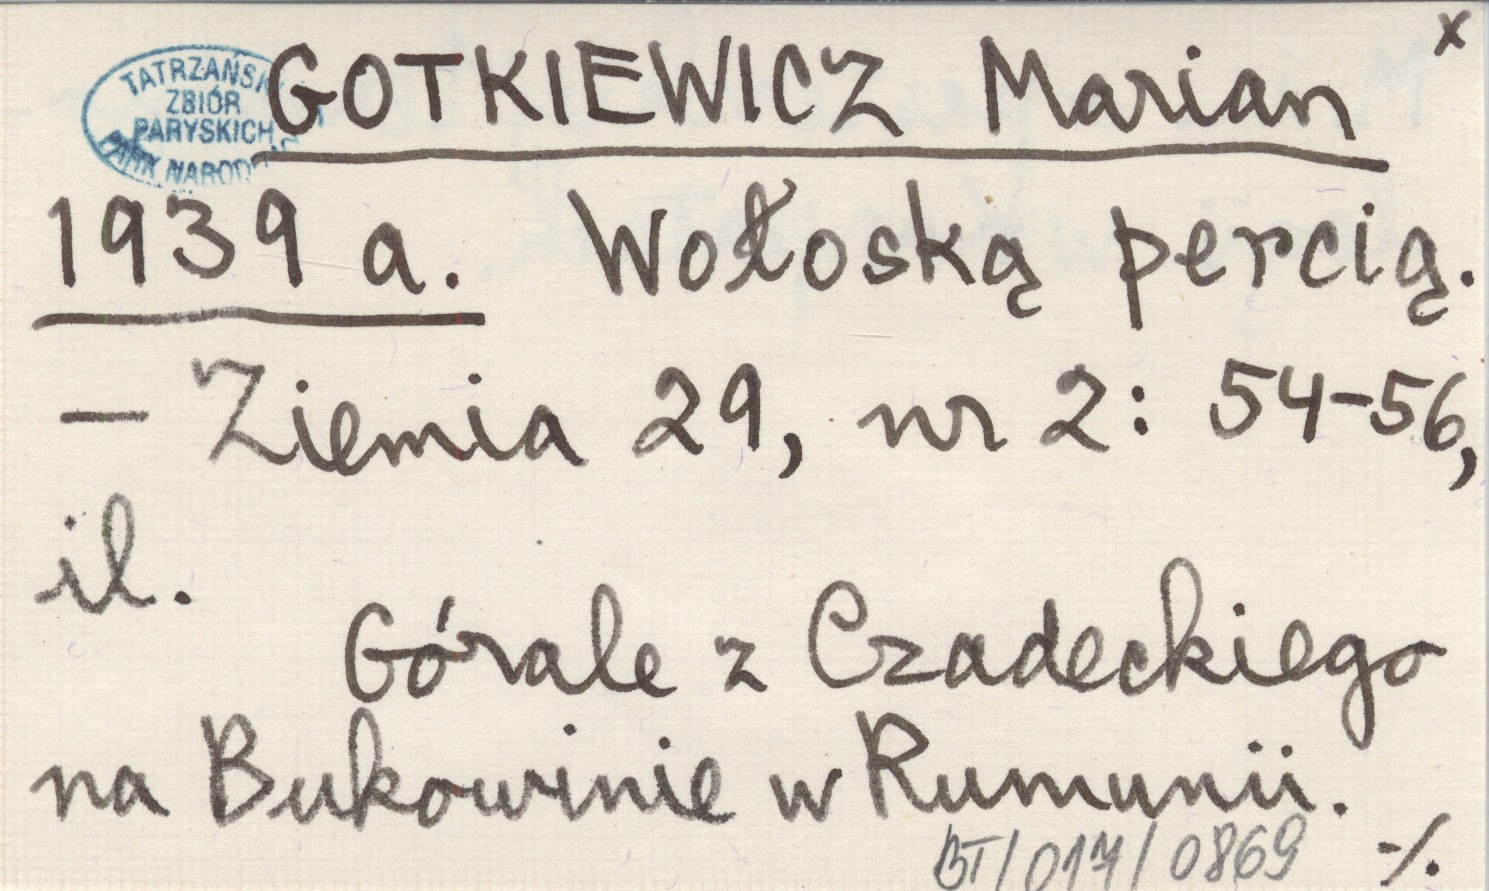 x
TATRZAŃSKI
ZBIÓR
PARYSKICH
PARK NARODOWY
GOTKIEWICZ Marian
1939 a. Wołoską percią.
— Ziemia 29, nr 2: 54-56,
il.
Górale z Czadeckiego
na Bukowinie w Rumunii.
BT/017/0869 -/.